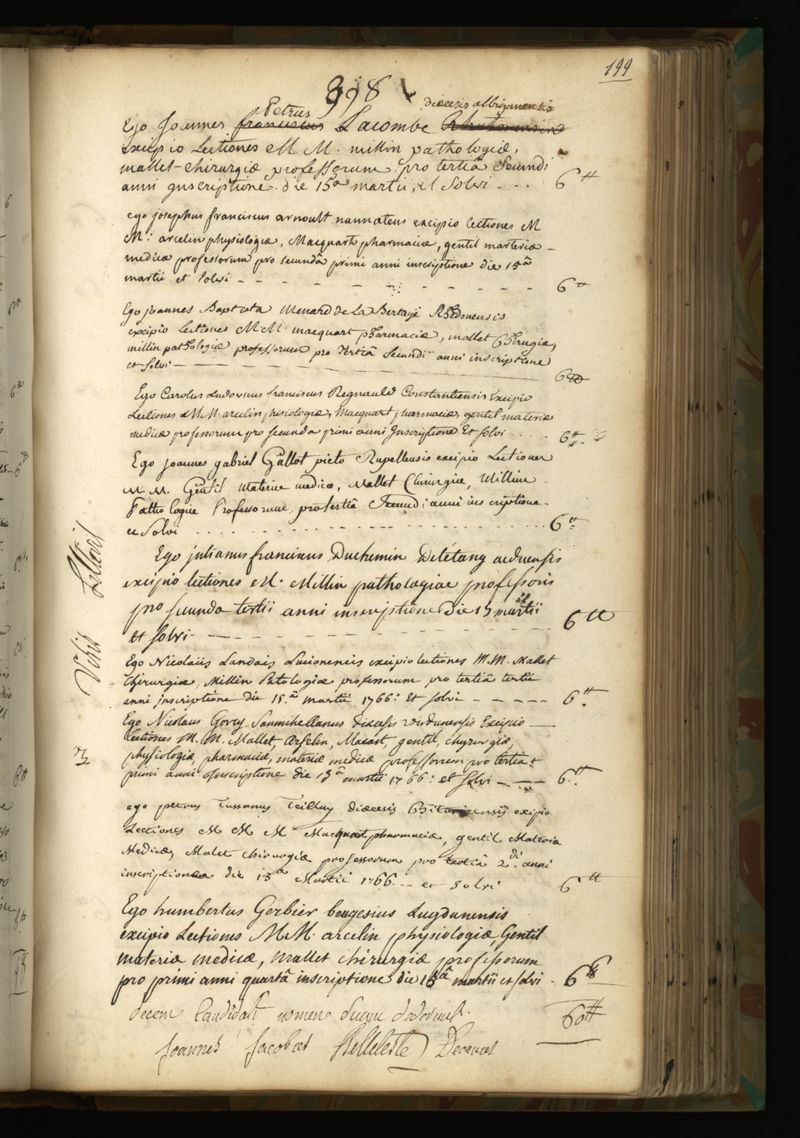 199
398
Petrus diœcesis albiganensis
Ego Joannes franciscus Lacombe
excipio Lectiones M M. millin pathologiæ,
mallet chirurgiæ professorum pro tertiâ secundi
anni inscriptione die 15a martii, et solvi - - - 6 tt
ego josephus franciscus arnoult nannæteus excipio lectiones M
M. arcelin physiologiæ, Macquart pharmaciæ, gentil materiæ
medicæ professorum pro secundâ primi anni inscriptione die 15a
martii et solvi - - - - - - - - 6 tt
Ego joannes Baptista Menard de La Bertaye Rhedonensis
excipio Lectiones M M. macquart pharmaciæ, mallet Chirugiæ,
millin pathologiæ professorum pro tertiâ secundi anni inscriptione
et solvi - 6 tt
Ego Carolus Ludovicus franciscus Regnauld Constantiensis Excipio
Lectiones M.M. arcelin phisiologiæ, Macquart pharmaciæ, gentil materiæ
medicæ professorum pro secunda primi anni Inscriptione Et solvi . . . . 6 tt
Ego joannes gabriel Gallot picto Rupellensis excipio Lectiones
M. M. Gentil Materiæ medicæ, Mallet Chirurgiæ, Millin
Pathologiæ Professorum, pro tertiâ Secundi anni inscriptione
et Solvi . . . . . . . . . . 6 tt
Ego julianus franciscus Duchemin Delétang
excipio lectiones M. Millin pathologiæ professoris
pro secunda tertii anni inscriptione Die 15 martii
et solvi - - - - - - - 6 tt
Ego Nicolaüs Landais Lucionensis excipio lectiones M.M. Mallet
Chirurgiæ, Millin Patologiæ professorum pro tertiâ tertii
anni inscriptione die 15.a martii 1766: et solvi - - - - - 6 tt
Ego Nicolaus Gorcy Sanmihellanus diœcesis virdunensis Excipio
Lectiones M. M. Mallet, Arselin, Macart, gentil, chyrurgiæ,
physiologiæ, pharmaciæ, materiæ medicæ professorum pro tertia
primi anni inscriptione die 15a martii 1766: et solvi - - - 6 tt
ego petrus Tussanus Teillay diœcesis Bituricensis excipio
Lectiones M M M Macquart pharmaciæ, gentil Materiæ
Medicæ, Malet chirurgiæ professorum pro tertiâ 2di anni
inscriptione die 15a Martii 1766 . . . et Solvi 6 tt
Ego humbertus Gerbier beugesius Lugdunensis
excipio Lectiones M M. arcelin physiologiæ, Gentil
materiæ medicæ, mallet chirurgiæ professorum
pro primi anni quartâ inscriptione die 15a martii et solvi - 6 tt
decem Candidati nomine suum 60 tt
Joannes Jacobus Belleteste Decanus